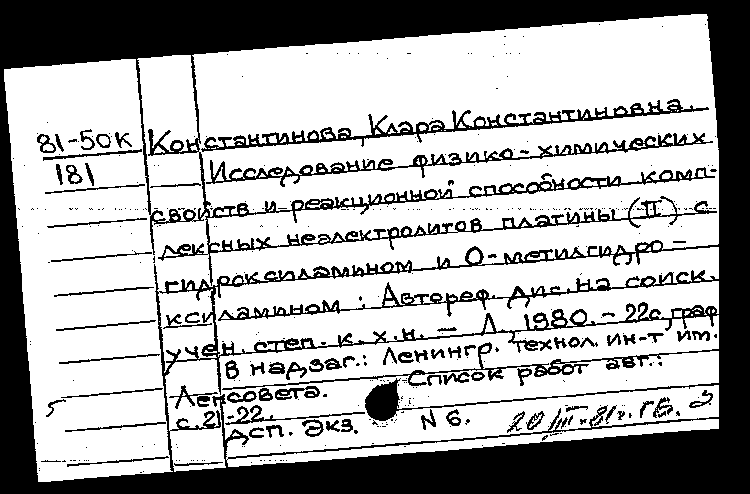 81-50К Константинова, Клара Константиновна.
181 Исследование физико-химических
свойств и реакционной способности комп-
лексных неэлектролитов платины (II) с
гидроксиламином и О-метилгидро-
ксиламином: Автореф. дис. на соиск.
учен. степ. к. х. н. – Л., 1980. – 22с, граф
В надзаг.: Ленингр. технол. ин-т им.
Ленсовета. Список работ авт.:
с. 21-22.
ДСП. Экз. N 6. 20 III-81г. ГБ.